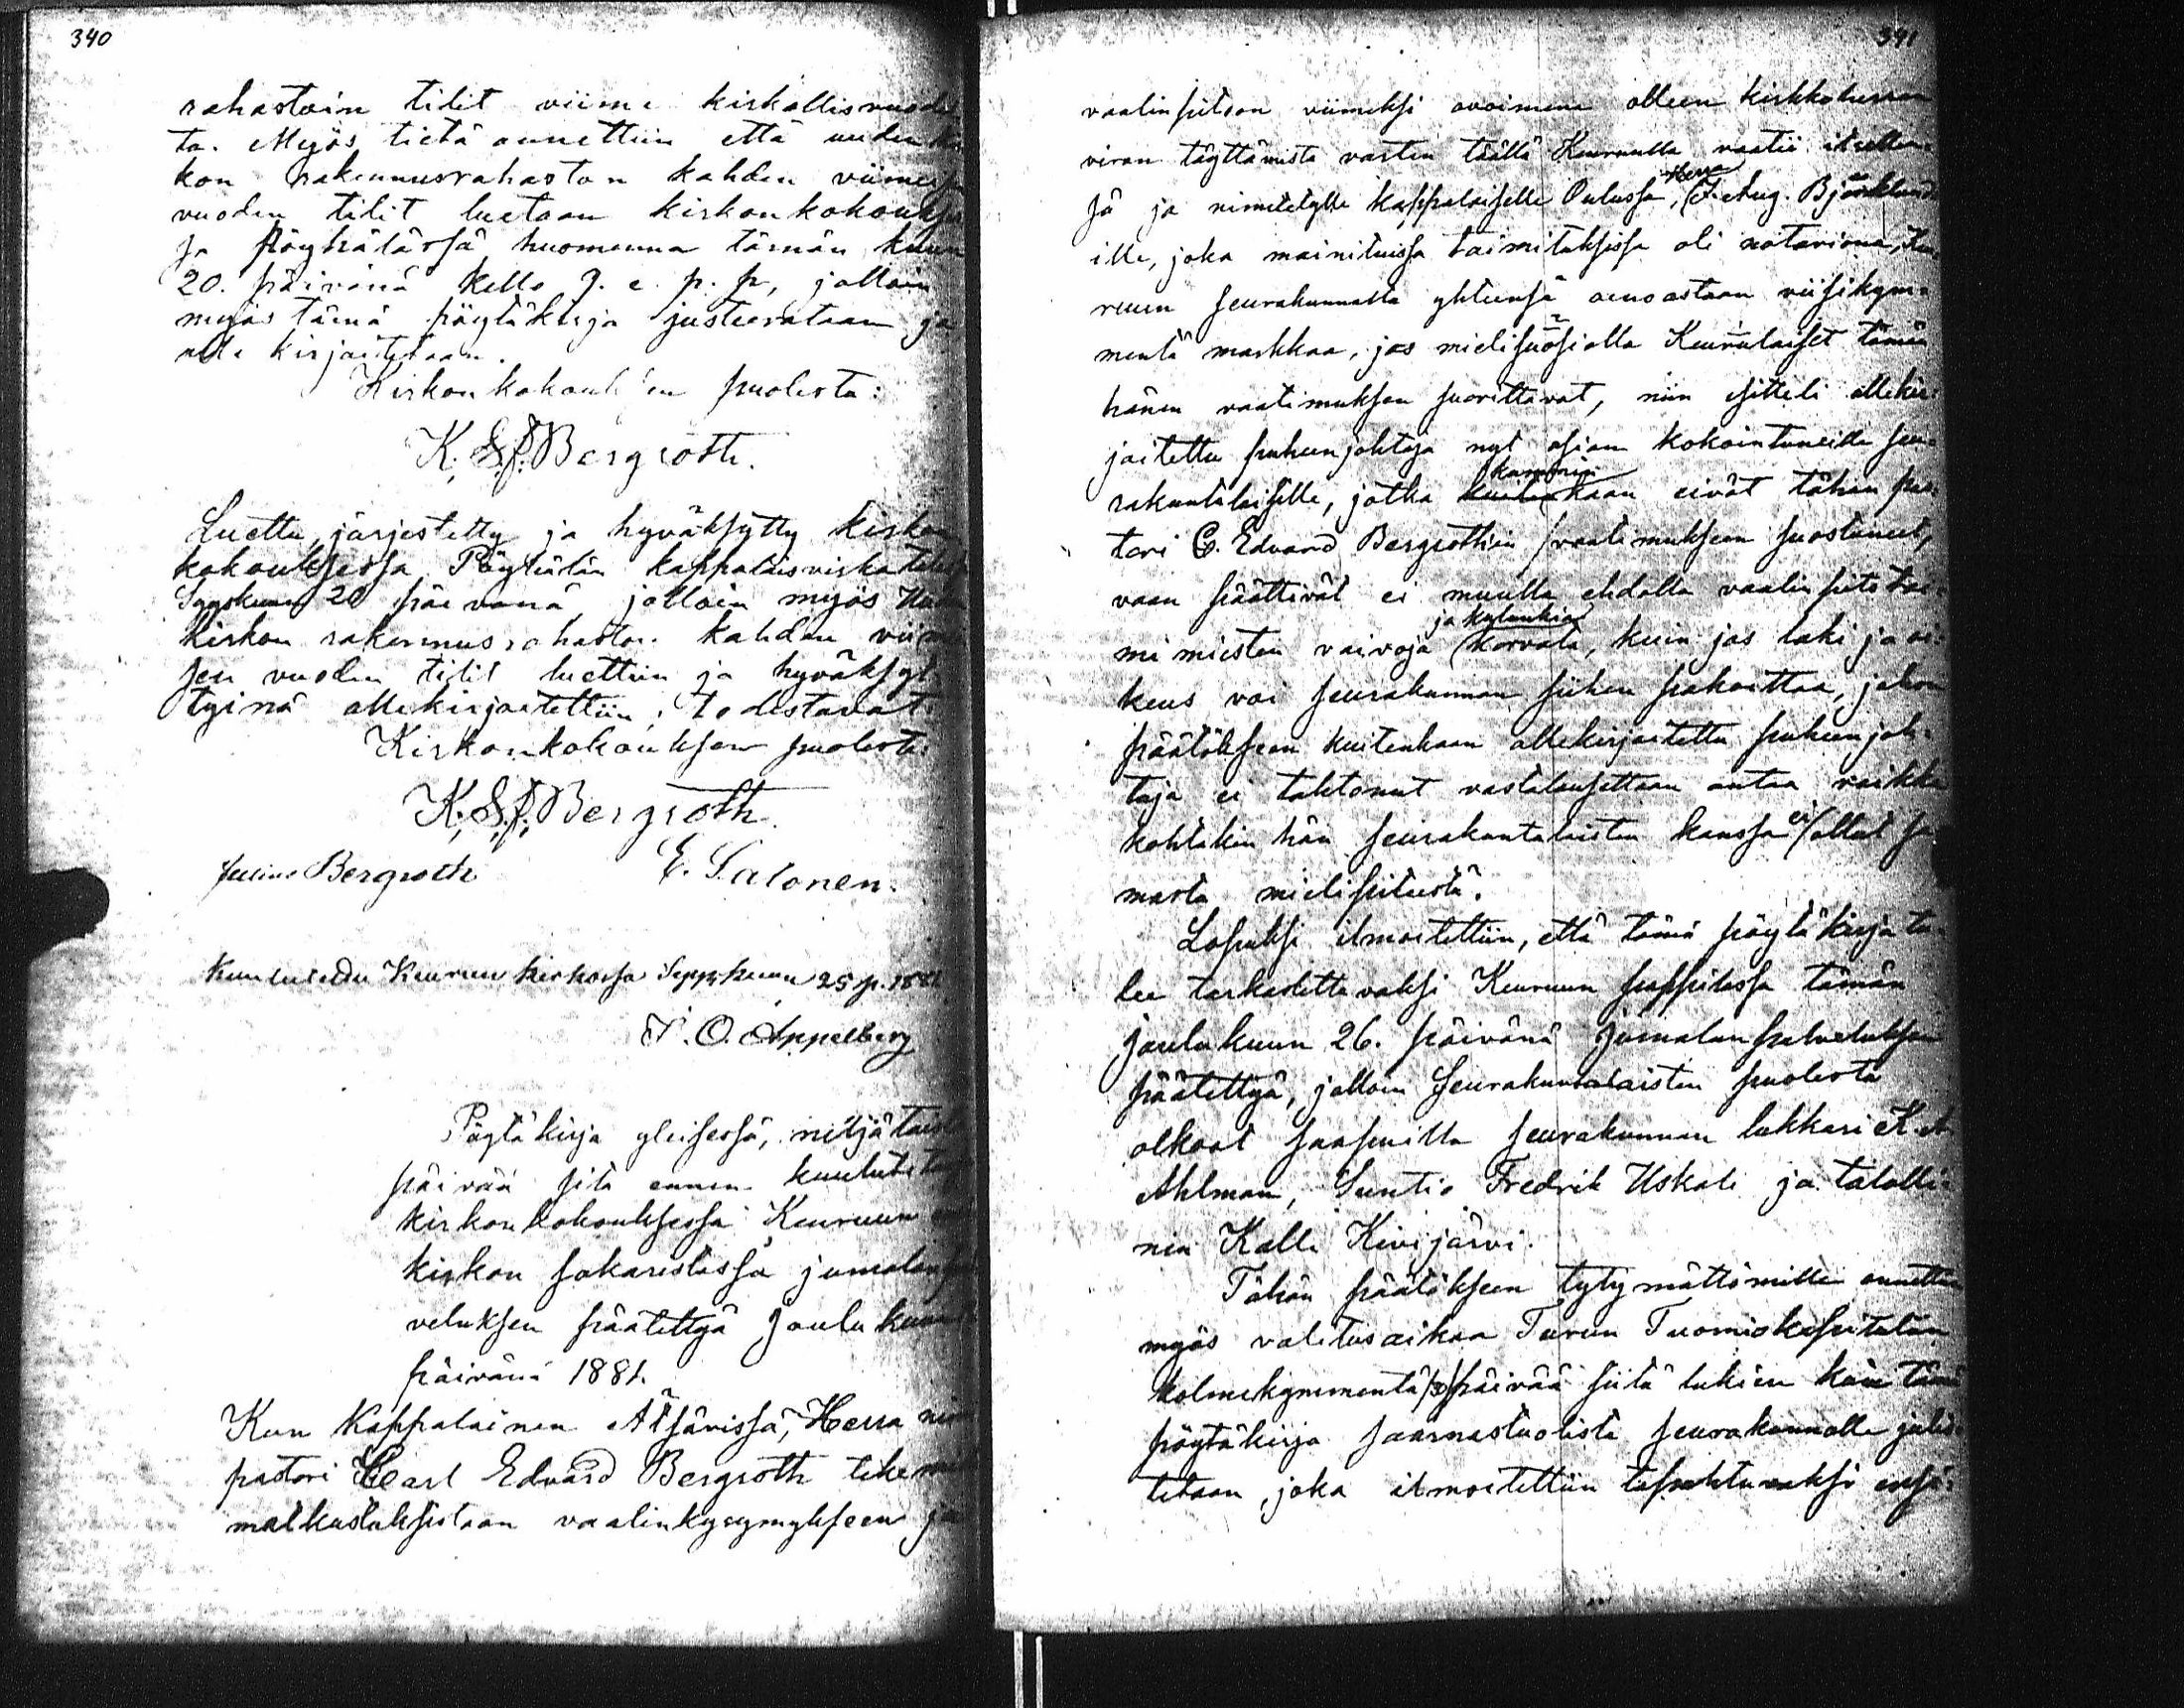 340
rahastoin tilit viime kirkollisvuodel
ta. Myös tietä annettiin että uuden
kon rakennusrahaston kahden viimeisen
vuoden tilit luetaan kirkonkokoukses
sa Pöyhälässä huomenna tämän kuun
20. päivänä kello 9. e. p. p., jolloin
myös tämä pöytäkirja justeerataan ja
alle kirjoitetaan.
Kirkonkokouksen puolesta:
K. S. f. Bergroth.
Luettu, järjestetty ja hyväksytty kirkon
kokouksessa kappalaisvirkatalos
Syyskuun 20 päivänä, jolloin myös
kirkon rakennusrahaston kahden viim
sen vuoden tilit luettiin ja hyväksyt
tyinä allekirjoitettiin; todistavat:
Kirkonkokouksen puolesta:
K. S. f. Bergroth.
Julius Bergroth E. Salonen.
Kuulutettu Keuruun kirkossa Syyskuun 25 p. 1881.
F. O. Appelberg
Pöytäkirja yleisessä, neljätoista
päivää sitä ennen kuulutetussa
kirkonkokouksessa Keuruun
kirkon sakaristossa jumalanpal
veluksen päätettyä Joulukuun
päivänä 1881.
Kun Kappalainen Ätsärissä, Herra
pastori Carl Edvard Bergroth teke
matkustuksistaan vaalinkysymykseen ja
341
vaalinpitoon viimeksi avoimena olleen kirkkoherran
viran täyttämistä varten täällä Keuruulla vaatii itsellen-
sä ja nimitetylle kappalaiselle Oulussa, Herra F. Aug. Björklund
ille, joka mainituissa toimituksissa oli notariona, Keu-
ruun seurakunnalta yhteensä ainoastaan viisikym-
mentä markkaa, jos mielisuosiolla Keurulaiset tämän
hänen vaatimuksen suorittavat, niin esitteli allekir-
joitettu puheenjohtaja nyt asian kokointuneille seu-
rakuntalaisille, jotka kummin kuitenkaan eivät tähän pas-
tori C. Edvard Bergrothin vaatimukseen suostuneet,
vaan päättivät ei muulla ehdolla vaalinpito toi-
mi miesten vaivoja ja kulunkia korvata, kuin jos laki ja oi-
keus voi seurakunnan siihen pakoittaa, johon
päätökseen kuitenkaan allekirjoitettu puheenjoh-
taja ei tahtonut vastalausettaan antaa vaikka
kohtakin hän seurakuntalaisten kanssa ei ollut sa-
masta mielipiteestä.
Lopuksi ilmoitettiin, että tämä pöytäkirja tu-
lee tarkastettavaksi Keuruun pappilassa tämän
joulukuun 26. päivänä Jumalanpalveluksen
päätettyä, jolloin Seurakuntalaisten puolesta
olkoot saapuvilla seurakunnan lukkari K. A.
Ahlman, Suntio Fredrik Uskali ja talolli-
nen Kalle Kivijärvi.
Tähän päätökseen tytymättömille annettiin
myös valitusaikaa Turun Tuomiokapituliin
kolmekymmentä /30/ päivää siitä lukien kuin tämä
pöytäkirja saarnastuolista seurakunnalle julis-
tetaan, joka ilmoitettiin tapahtuvaksi ensi-